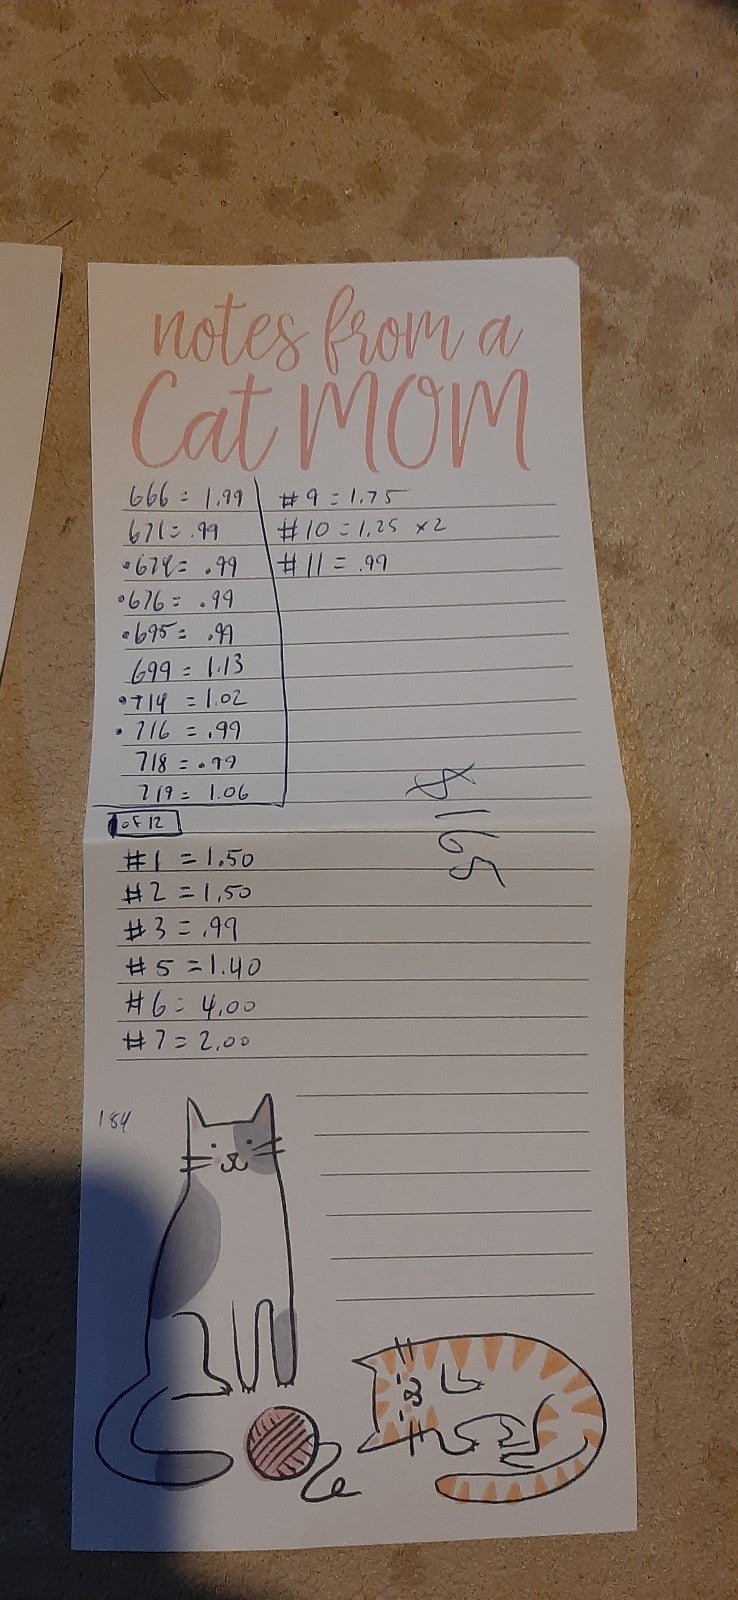 notes from a
Cat MOM
666 = 1.99
671 = .99
•679 = .99
•676 = .99
•695 = .99
699 = 1.13
•714 = 1.02
•716 = .99
718 = .99
719 = 1.06
#9 = 1.75
#10 = 1.25 x2
#11 = .99
of 12
#1 = 1.50
#2 = 1.50
#3 = .99
#5 = 1.40
#6 = 4.00
#7 = 2.00
$165
184